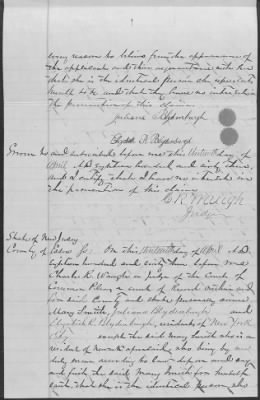 every reason to believe from the appearance of
the applicant and their acquaintance with her
that she is the identical person she represents
herself to be and that they have no interest in
the prosecution of this claim.
Juliana Blydenburgh
Elizabeth R. Blydenburgh
Sworn to and subscribed before me this day of
April A.D. eighteen hundred and sixty three,
and I certify that I have no interest in
the prosecution of this claim
C. R. Waugh
Judge
State of New Jersey
County of Essex ss. On this day of April A.D.
eighteen hundred and sixty three before me
Charles R. Waugh a judge of the Court of
Common Pleas a court of Record within and
for said County and State personally came
Mary Smith, Juliana Blydenburgh and
Elizabeth R. Blydenburgh, residents of New York
City except the said Mary Smith who is a
resident of Newark aforesaid, who being by me
duly sworn according to law depose and say
and first the said Mary Smith for herself
saith that she is the identical person who